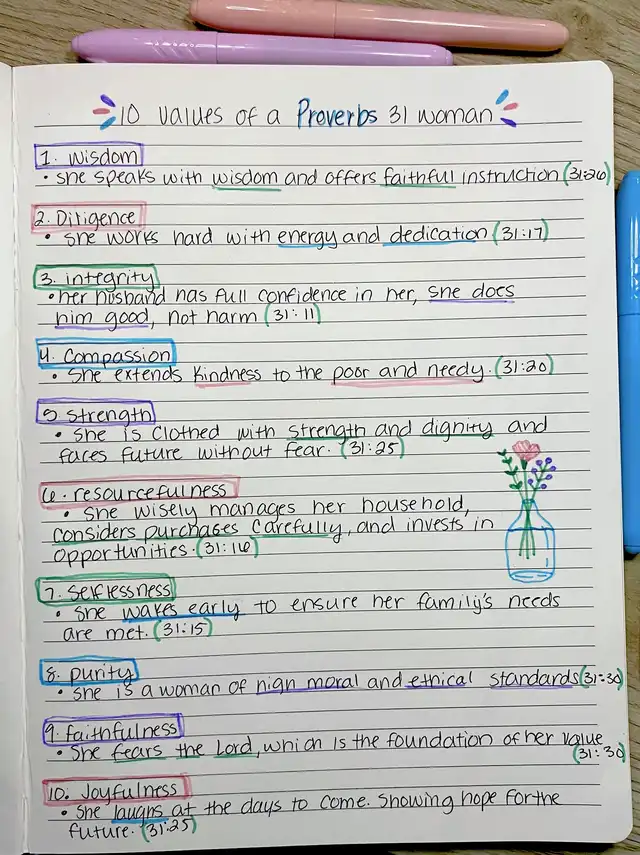 10 values of a Proverbs 31 woman
1. wisdom
• she speaks with wisdom and offers faithful instruction (31:26)
2. Diligence
• she works hard with energy and dedication (31:17)
3. integrity
• her husband has full confidence in her, she does
him good, not harm (31:11)
4. Compassion
• She extends kindness to the poor and needy. (31:20)
5 strength
• she is clothed with strength and dignity and
faces future without fear. (31:25)
6. resourcefulness
• She wisely manages her household,
considers purchases carefully, and invests in
opportunities. (31:16)
7. Selflessness
• She wakes early to ensure her family's needs
are met. (31:15)
8. purity
• She is a woman of high moral and ethical standards (31:30)
9. faithfulness
• She fears the Lord, which is the foundation of her value
(31:30)
10. Joyfulness
• She laughs at the days to come. Showing hope for the
future. (31:25)